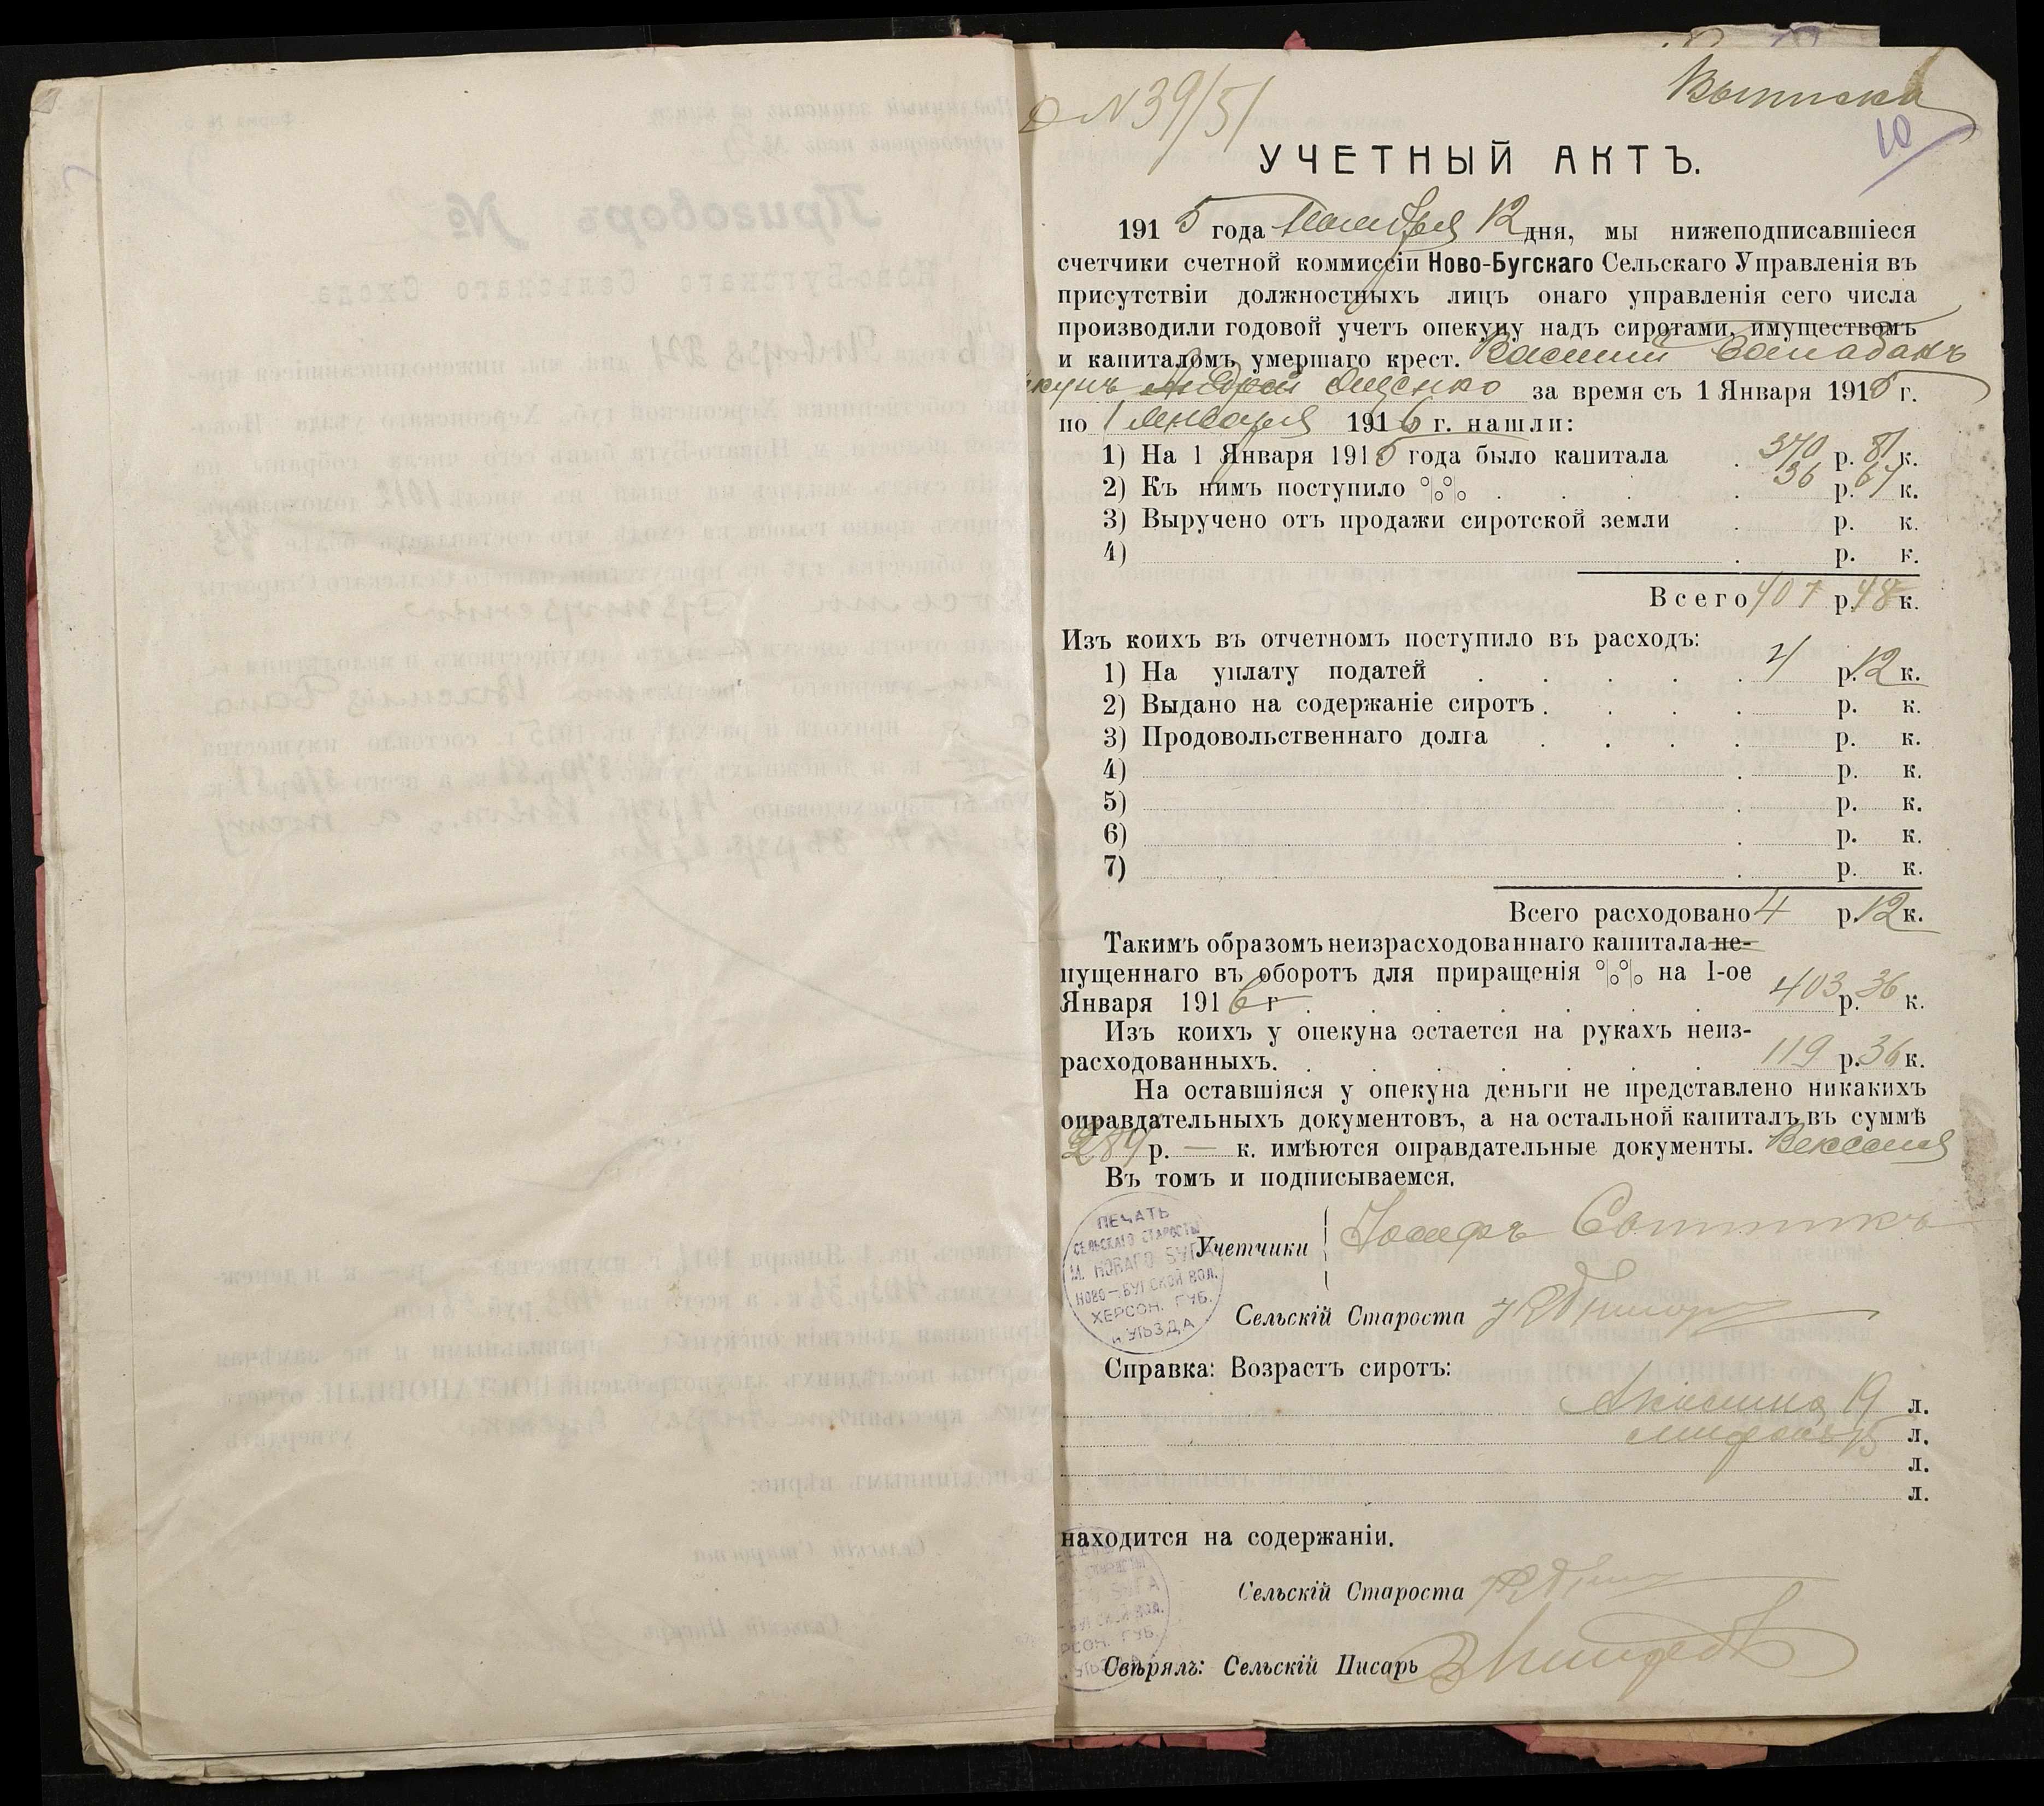 № 39/51
Выписка
10
УЧЕТНЫЙ АКТЪ.
191 5 года 12 дня, мы нижеподписавшіеся
счетчики счетной коммиссіи Ново-Бугскаго Сельскаго Управленія въ
присутствіи должностныхъ лицъ онаго управленія сего числа
производили годовой учетъ опекуну надъ сиротами, имуществомъ
и капиталомъ умершаго крест. Василій
Андрей Ощенко за время съ 1 Января 1915 г.
по 1 Января 1916 г. нашли:
1) На 1 Января 1915 года было капитала . 370 р. 81 к.
2) Къ нимъ поступило %% . . . . . 36 р. 67 к.
3) Выручено отъ продажи сиротской земли . р. к.
4) . р. к.
Всего 407 р. 48 к.
Изъ коихъ въ отчетномъ поступило въ расходъ:
1) На уплату податей . . . . . 4 р. 12 к.
2) Выдано на содержаніе сиротъ . . . . р. к.
3) Продовольственнаго долга . . . . р. к.
4) . р. к.
5) . р. к.
6) . р. к.
7) . р. к.
Всего расходовано 4 р. 12 к.
Такимъ образомъ неизрасходованнаго капитала не-
пущеннаго въ оборотъ для приращенія %% на 1-ое
Января 1916 г . . . . . . . 403 р. 36 к.
Изъ коихъ у опекуна остается на рукахъ неиз-
расходованныхъ. . . . . . . . 119 р. 36 к.
На оставшіяся у опекуна деньги не представлено никакихъ
оправдательныхъ документовъ, а на остальной капиталъ въ суммѣ
284 р. — к. имѣются оправдательные документы. Векселя
Въ томъ и подписываемся.
ПЕЧАТЬ
СЕЛЬСКАГО СТАРОСТЫ
М. НОВАГО БУГА
НОВО-БУГСКОЙ ВОЛ.
ХЕРСОН. ГУБ.
И УѢЗДА
Учетчики Іосифъ
Сельскій Староста
Справка: Возрастъ сиротъ:
Акилина 19 л.
15 л.
л.
л.
находится на содержаніи.
Сельскій Староста
Свѣрялъ: Сельскій Писарь